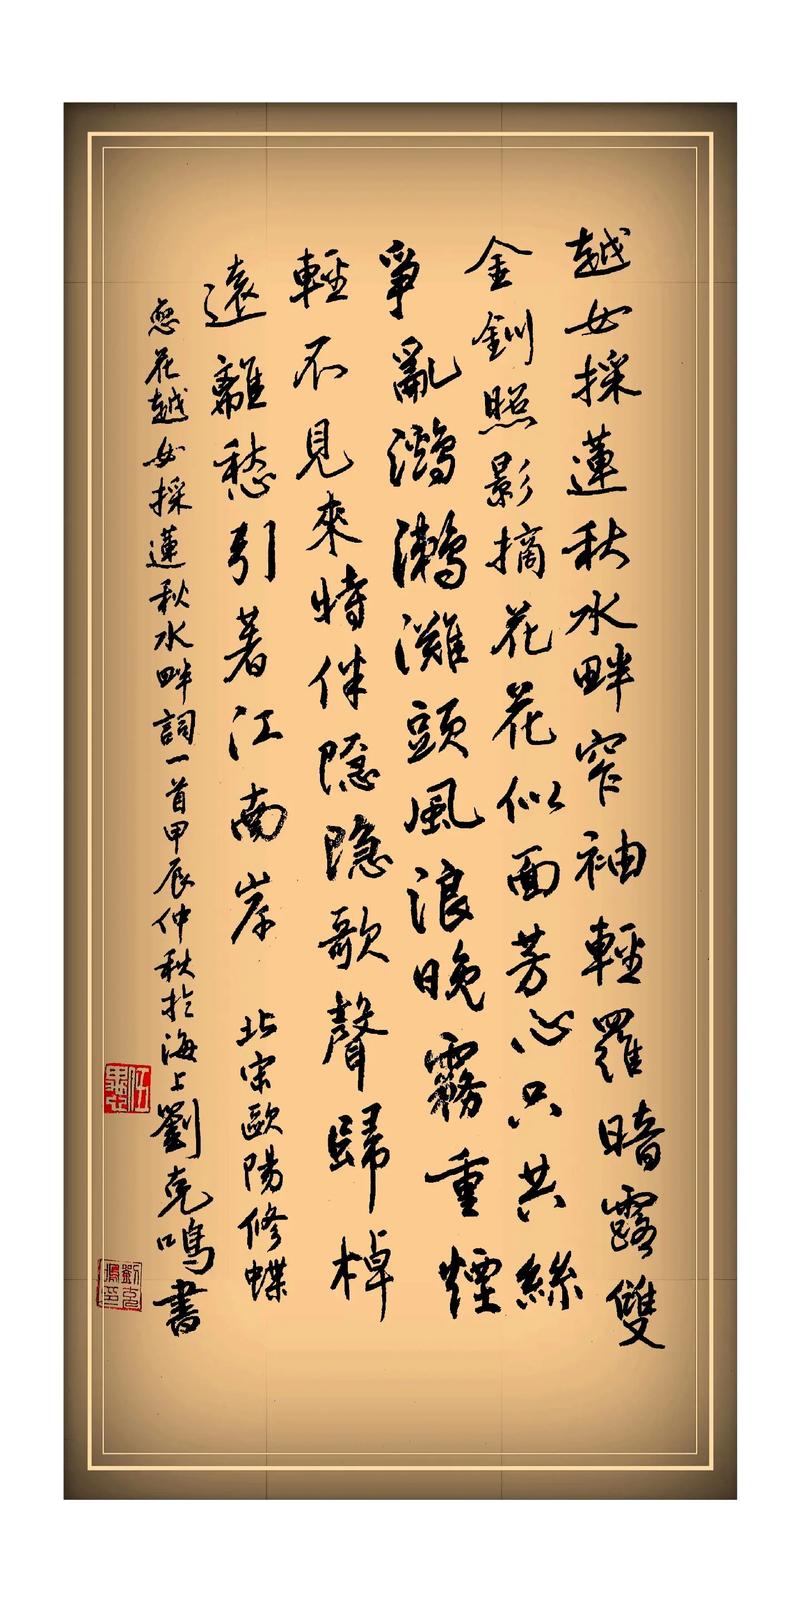 越女採蓮秋水畔窄袖輕羅暗露雙
金釧照影摘花花似面芳心只共絲
爭亂鸂鶒灘頭風浪晚霧重煙
輕不見來時伴隱隱歌聲歸棹
遠離愁引著江南岸 北宋歐陽修蝶
戀花越女採蓮秋水畔詞一首甲辰仲秋於海上劉克鳴書
劉克鳴印